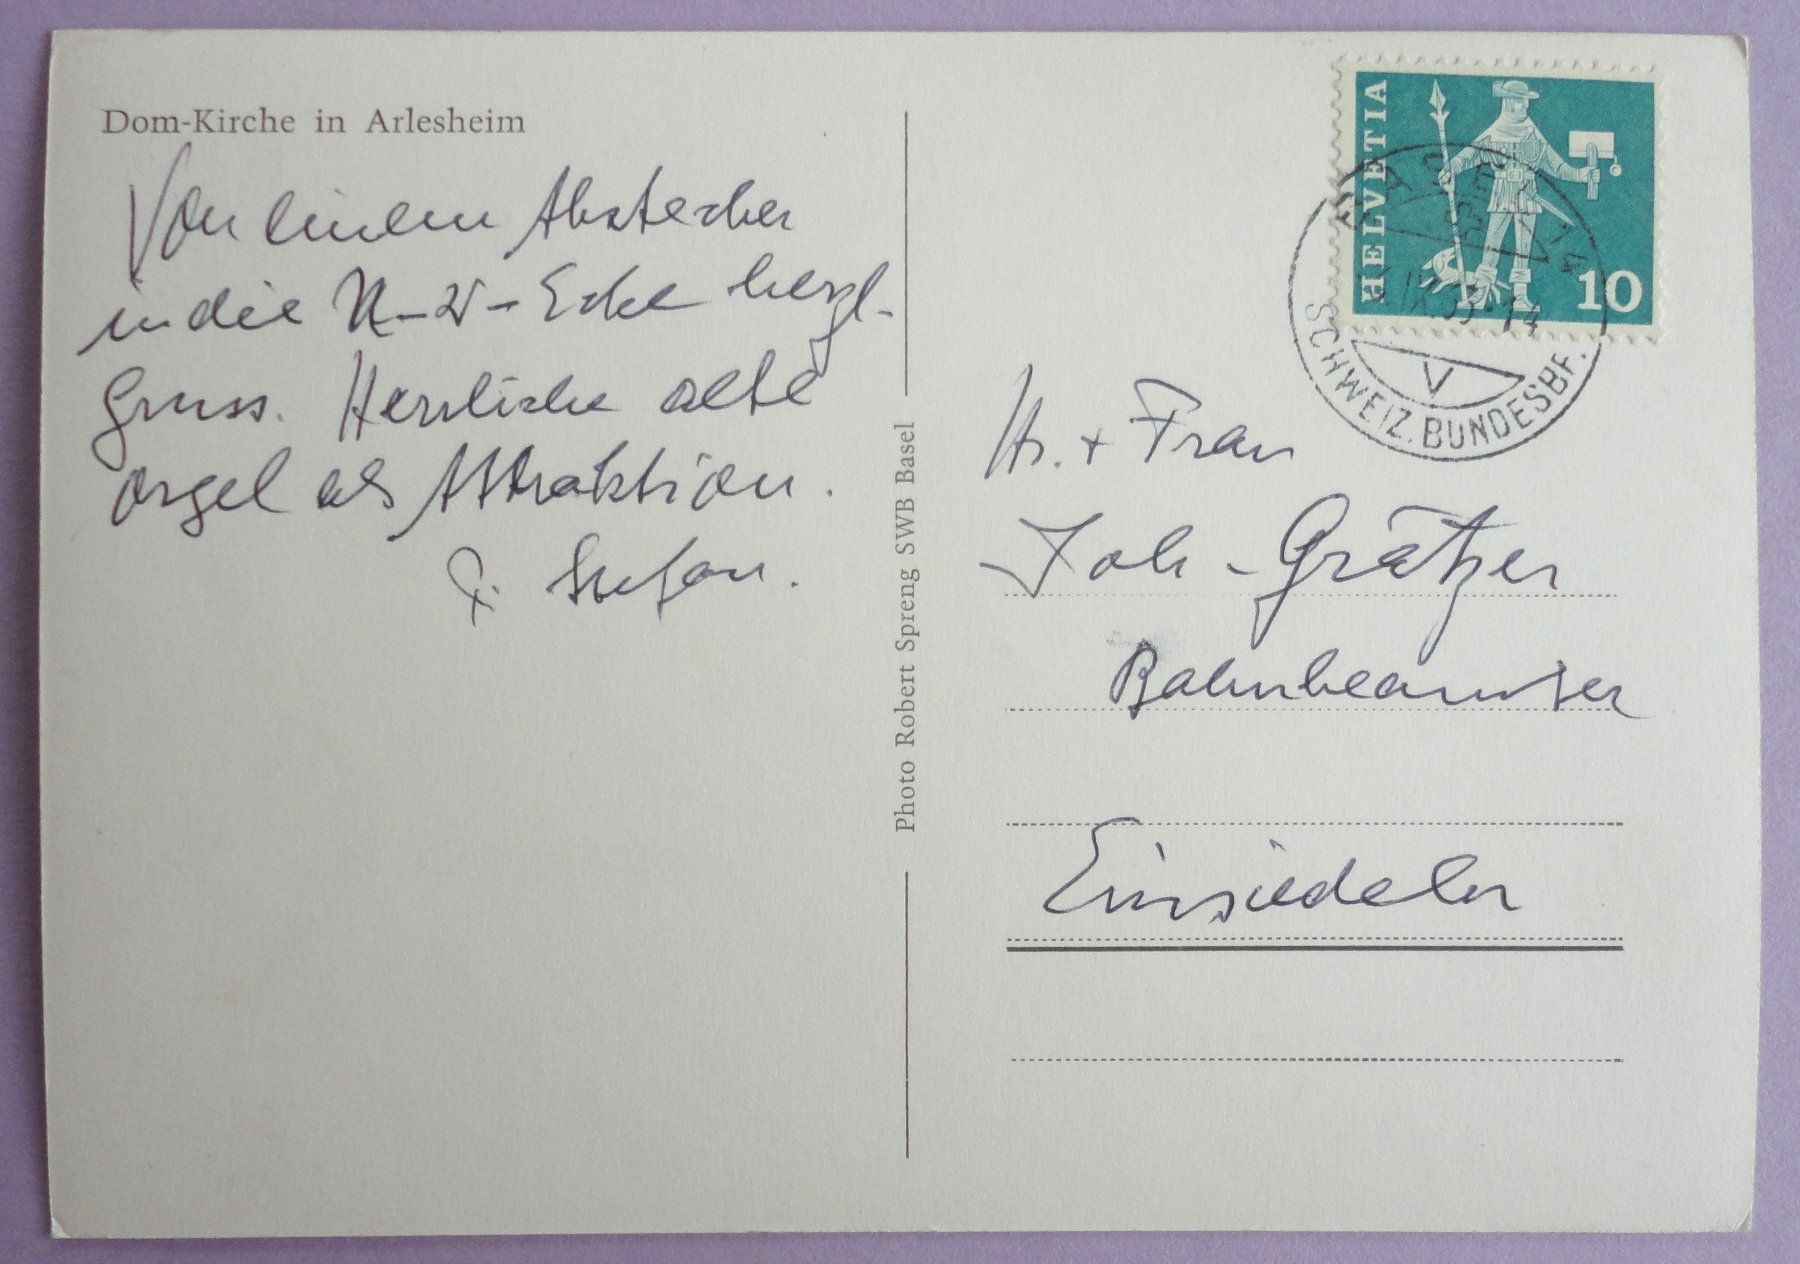 Dom-Kirche in Arlesheim
Von einem Abstecher
in die N-W-Ecke herzl.
Gruss. Herrliche alte
Orgel als Attraktion.
P. Stefan.
Photo Robert Spreng SWB Basel
HELVETIA
10
SCHWEIZ. BUNDESBF.
V
Hr. + Frau
Joh - Grätzer
Bahnbeamter
Einsiedeln